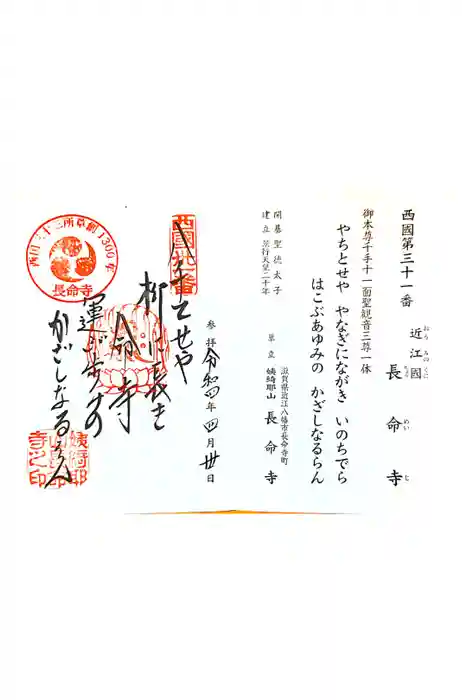 西國第三十一番
近江國 長命寺
おうみのくに ちょうめいじ
御本尊千手十一面聖観音三尊一体
やちとせや やなぎにながき いのちでら
はこぶあゆみの かざしなるらん
開基 聖徳太子
建立 景行天皇二十年
滋賀県近江八幡市長命寺町
単立 姨綺耶山 長命寺
参拝 令和四年 四月 卅日
西國卅一番
八千とせや
柳に長き
命寺
運ぶ歩の
かざしなるらん
西国三十三所草創1300年
長命寺
姨綺耶山長命寺之印